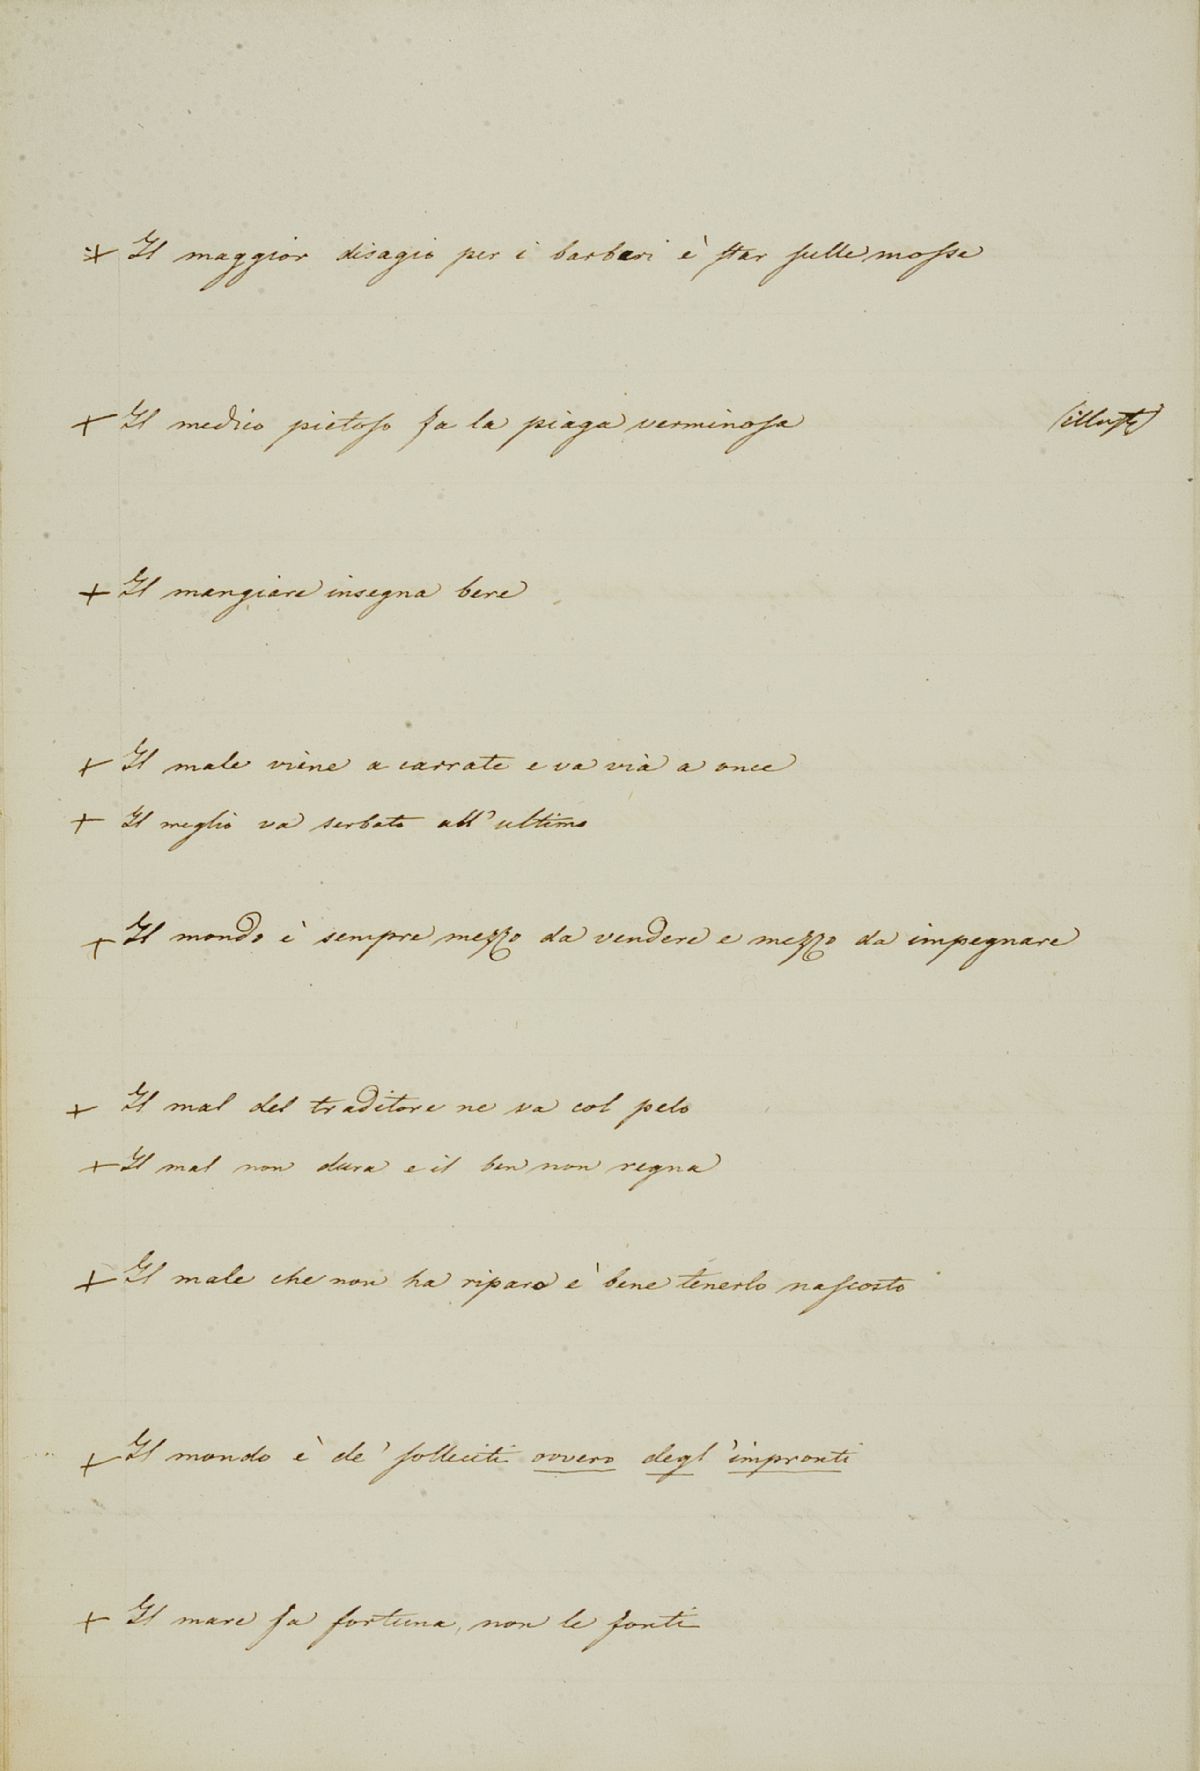 + Il maggior disagio per i barbari è star sulle mosse
+ Il medico pietoso fa la piaga verminosa (illust.)
+ Il mangiare insegna bere
+ Il male viene a carrate e va via a once
+ Il meglio va serbato all'ultimo
+ Il mondo è sempre mezzo da vendere e mezzo da impegnare
+ Il mal del traditore ne va col pelo
+ Il mal non dura e il ben non regna
+ Il male che non ha riparo è bene tenerlo nascosto
+ Il mondo è de' solleciti ovvero degl'impronti
+ Il mare fa fortuna, non le fonti